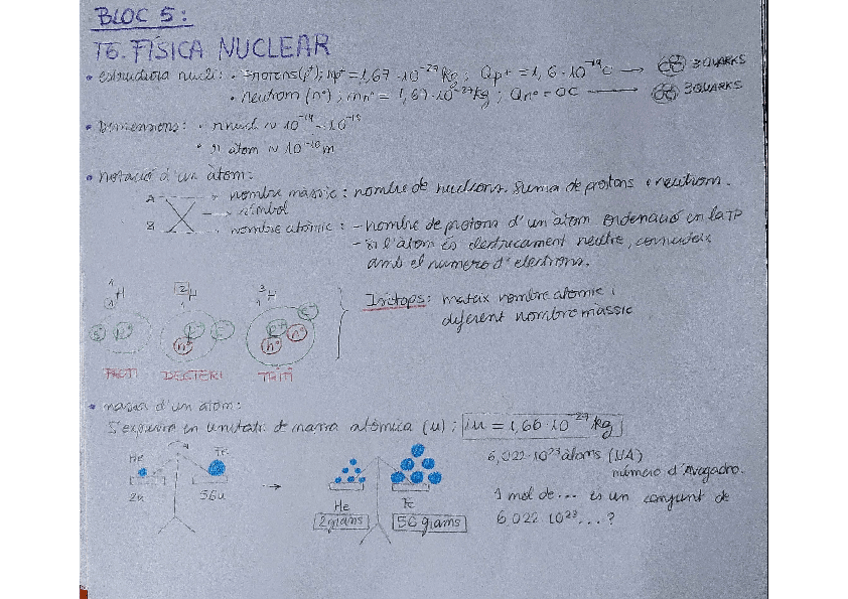 BLOC 5:
T6. FÍSICA NUCLEAR
• estructura nucli: • Protons (p+); mp+ = 1,67·10^-27 kg; Qp+ = 1,6·10^-19 C → 3 QUARKS
• neutrons (n°); mn° = 1,67·10^-27 kg; Qn° = 0C → 3 QUARKS
• Dimensions: • nucli ~ 10^-14 - 10^-15
• si àtom ~ 10^-10 m
• notació d'un àtom:
A → nombre màssic: nombre de nucleons. Suma de protons i neutrons.
X → símbol
Z → nombre atòmic: - nombre de protons d'un àtom ordenació en la TP
- si l'àtom és elèctricament neutre, coincideix
amb el número d'electrons.
1 1 H 2 1 H 3 1 H
Isòtops: mateix nombre atòmic i
diferent nombre màssic
e- p+ p+ n° e- p+ n° n° e-
PROTI DEUTERI TRITI
• massa d'un àtom:
S'expressa en unitats de massa atòmica (u); 1u = 1,66·10^-27 kg
He Fe
2u 56u
→
He Fe
2 grams 56 grams
6,022·10^23 àtoms (NA)
número d'Avogadro.
1 mol de... és un conjunt de
6,022·10^23 ...?